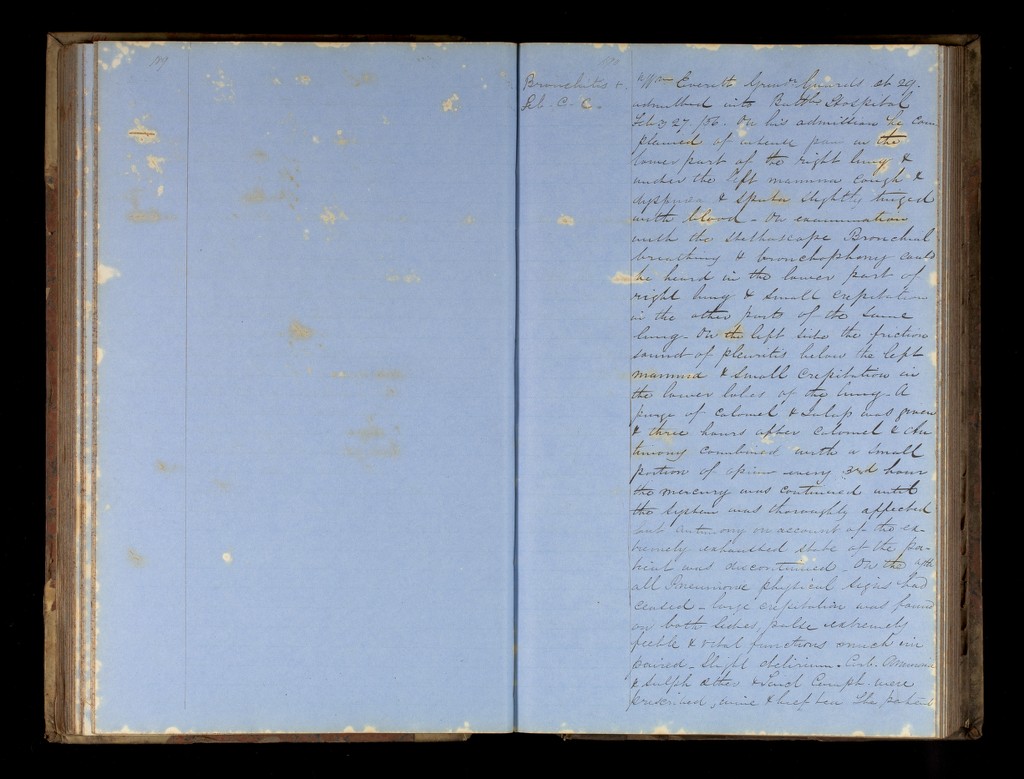 109
110
Bronchitis &
Feb. C. C.
Wm Everett Gren Guards at 29.
admitted into Bath Hospital
Feb 27 /56. On his admission he com
plained of intense pain in the
lower part of the right lung &
under the left mamma cough &
dyspnoea & sputa slightly tinged
with blood - On examination
with the stethoscope Bronchial
breathing & bronchophony could
be heard in the lower part of
right lung & small crepitation
in the other parts of the same
lung - On the left side the friction
sound of pleuritis below the left
mamma & small crepitation in
the lower lobes of the lung - A
purge of calomel & Jalap was given
& three hours after calomel & An
timony combined with a small
portion of opium every 3rd hour
the mercury was continued until
the system was thoroughly affected
but antimony on account of the ex-
tremely exhausted state of the pa-
tient was discontinued - On the
all Pneumonic physical signs had
ceased - large crepitation was found
on both sides, pulse extremely
feeble & vital functions much im
paired - Slight delirium - Carb. Ammon
& Sulph Ether & Tinct Camph were
prescribed, wine & beef tea The patient